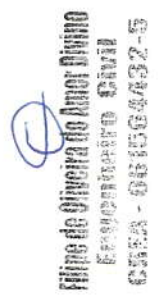 Filipe de Oliveira do Amor Divino
Engenheiro Civil
CREA - 051564432-5